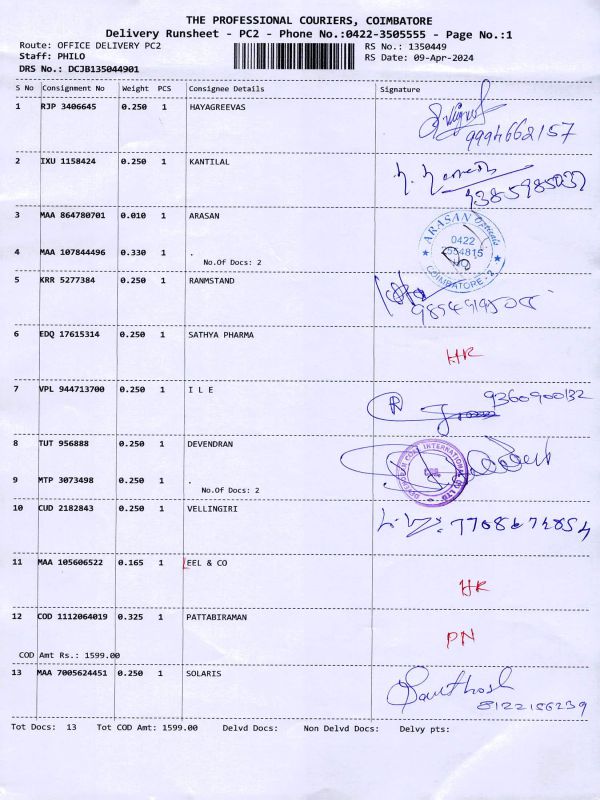 THE PROFESSIONAL COURIERS, COIMBATORE
Delivery Runsheet - PC2 - Phone No.:0422-3505555 - Page No.:1
Route: OFFICE DELIVERY PC2 RS No.: 1350449
Staff: PHILO RS Date: 09-Apr-2024
DRS No.: DCJB135044901
S No Consignment No Weight PCS Consignee Details Signature
1 RJP 3406645 0.250 1 HAYAGREEVAS
9994662157
2 IXU 1158424 0.250 1 KANTILAL
3 MAA 864780701 0.010 1 ARASAN
ARASAN Opticals
0422
2554815
COIMBATORE - 2
4 MAA 107844496 0.330 1 .
No.Of Docs: 2
5 KRR 5277384 0.250 1 RANMSTAND
6 EDQ 17615314 0.250 1 SATHYA PHARMA
HR
7 VPL 944713700 0.250 1 I L E
9360900132
8 TUT 956888 0.250 1 DEVENDRAN
9 MTP 3073498 0.250 1 .
No.Of Docs: 2
10 CUD 2182843 0.250 1 VELLINGIRI
11 MAA 105606522 0.165 1 EEL & CO
HR
12 COD 1112064019 0.325 1 PATTABIRAMAN
PN
COD Amt Rs.: 1599.00
13 MAA 7005624451 0.250 1 SOLARIS
Santhosh
8122186239
Tot Docs: 13 Tot COD Amt: 1599.00 Delvd Docs: Non Delvd Docs: Delvy pts: